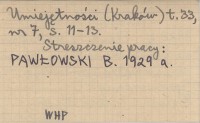 Umiejętności (Kraków) t. 33,
nr 7, s. 11-13.
Streszczenie pracy:
PAWŁOWSKI B. 1929 a.
WHP